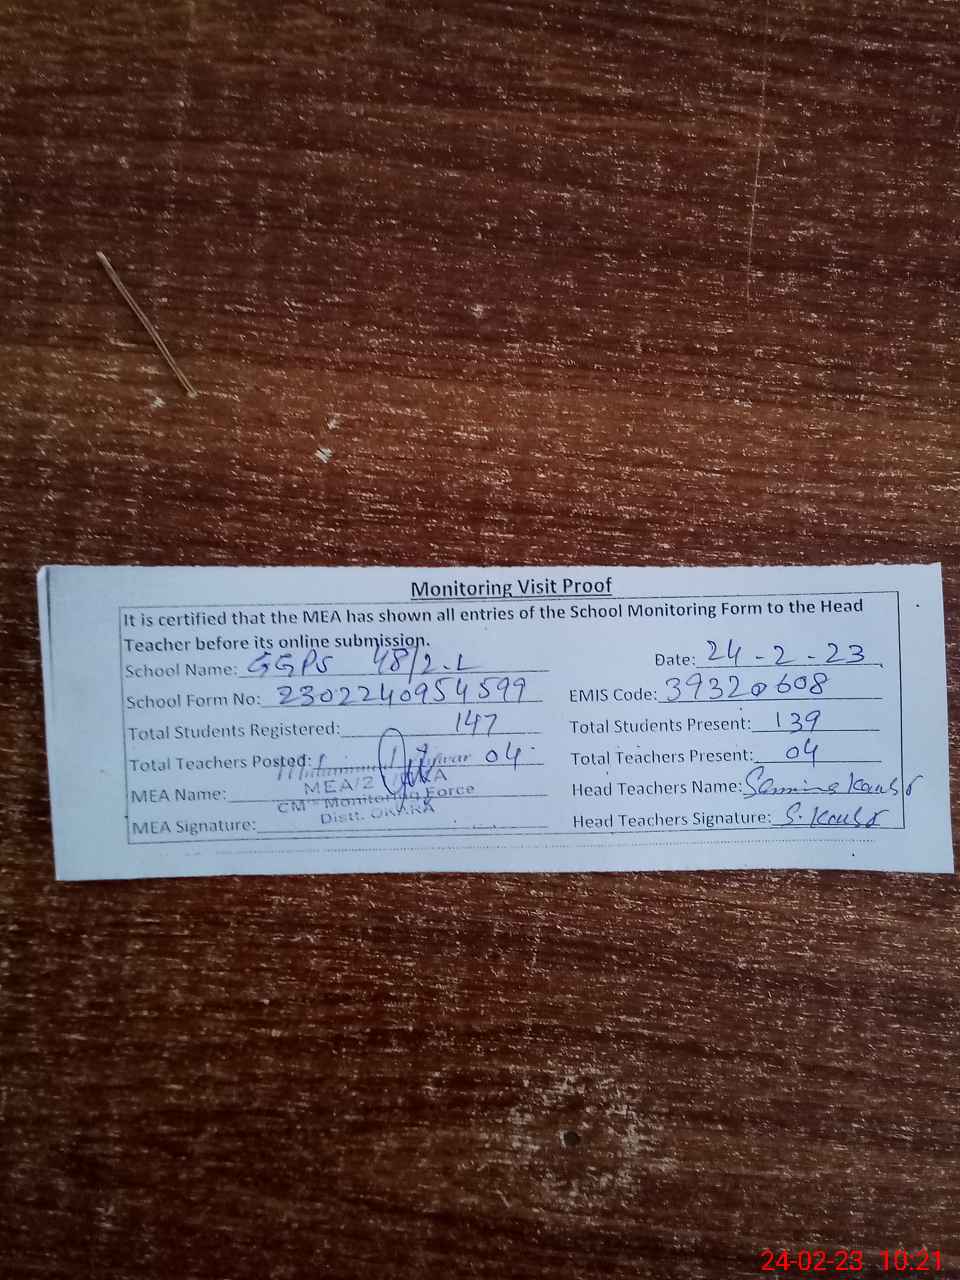 Monitoring Visit Proof
It is certified that the MEA has shown all entries of the School Monitoring Form to the Head
Teacher before its online submission.
School Name: GGPS 48/2-L Date: 24-2-23
School Form No: 2302240954599 EMIS Code: 39320608
Total Students Registered: 147 Total Students Present: 139
Total Teachers Posted: 04 Total Teachers Present: 04
MEA Name: MEA/2 Head Teachers Name: Kausar
CM's Monitoring Force
MEA Signature: Distt. OKARA Head Teachers Signature: S. Kausar
24-02-23 10:21